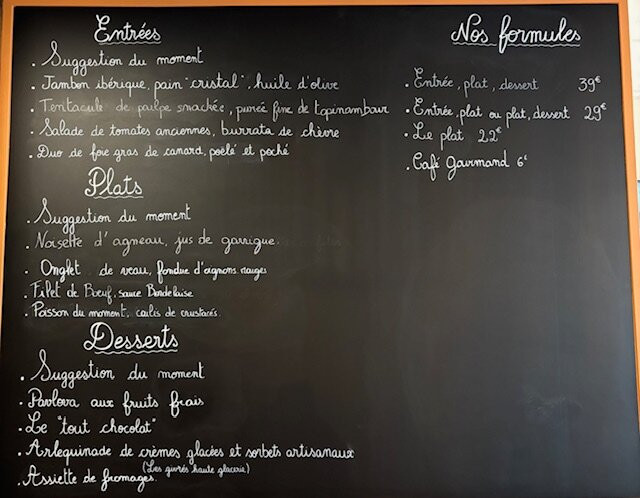 Entrées
. Suggestion du moment
. Jambon ibérique, pain "cristal", huile d'olive
. Tentacule de poulpe snackée, purée fine de topinambour
. Salade de tomates anciennes, burrata de chèvre
. Duo de foie gras de canard, poêlé et poché
Plats
. Suggestion du moment
. Noisette d'agneau, jus de garrigue
. Onglet de veau, fondue d'oignons rouges
. Filet de Bœuf, sauce Bordelaise
. Poisson du moment, coulis de crustacés.
Desserts
. Suggestion du moment
. Pavlova aux fruits frais
. Le "tout chocolat"
. Arlequinade de crèmes glacées et sorbets artisanaux
(Les givrés haute glacerie)
. Assiette de fromages.
Nos formules
. Entrée, plat, dessert 39€
. Entrée, plat ou plat, dessert 29€
. Le plat 22€
. Café Gourmand 6€